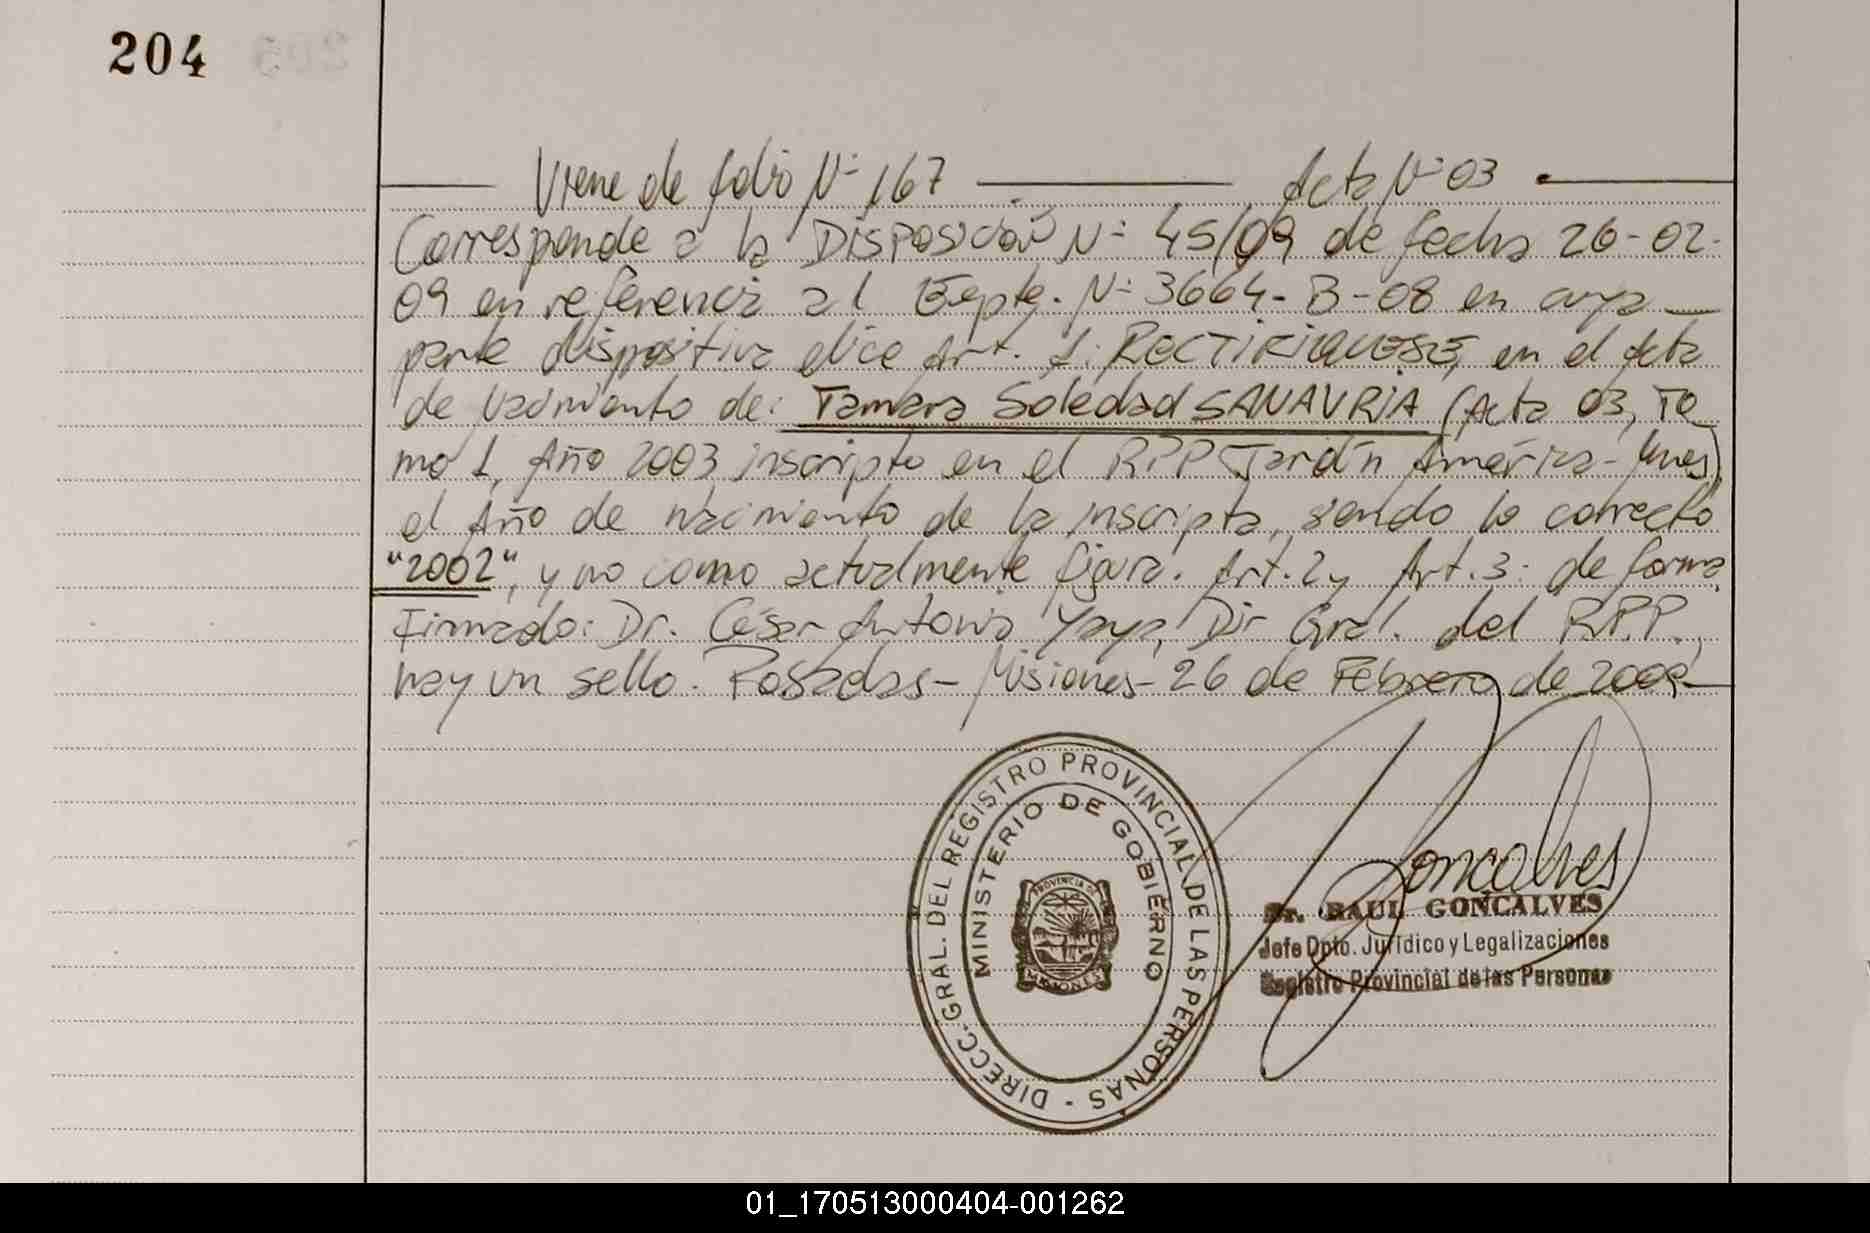 204
Viene de folio Nº 167 Acta Nº 03
Corresponde a la DISPOSICIÓN Nº 45/09 de fecha 26-02-
09 en referencia al Expte. Nº 3664-B-08 en cuya
parte dispositiva dice Art. 1: RECTIFIQUESE, en el Acta
de Nacimiento de: Tamara Soledad SANAVRIA (Acta 03, To
mo 1, Año 2003 inscripto en el RPP Jardín América-Mnes)
el Año de nacimiento de la inscripta, siendo lo correcto
"2002", y no como actualmente figura. Art. 2 y Art. 3: de forma.
Firmado: Dr. César Antonio Yaya, Dir Gral. del R.P.P.,
hay un sello. Posadas-Misiones-26 de Febrero de 2009
DIRECC. GRAL. DEL REGISTRO PROVINCIAL DE LAS PERSONAS -
MINISTERIO DE GOBIERNO
PROVINCIA DE
MISIONES
Goncalves
Dr. RAUL GONCALVES
Jefe Dpto. Jurídico y Legalizaciones
Registro Provincial de las Personas
01_170513000404-001262